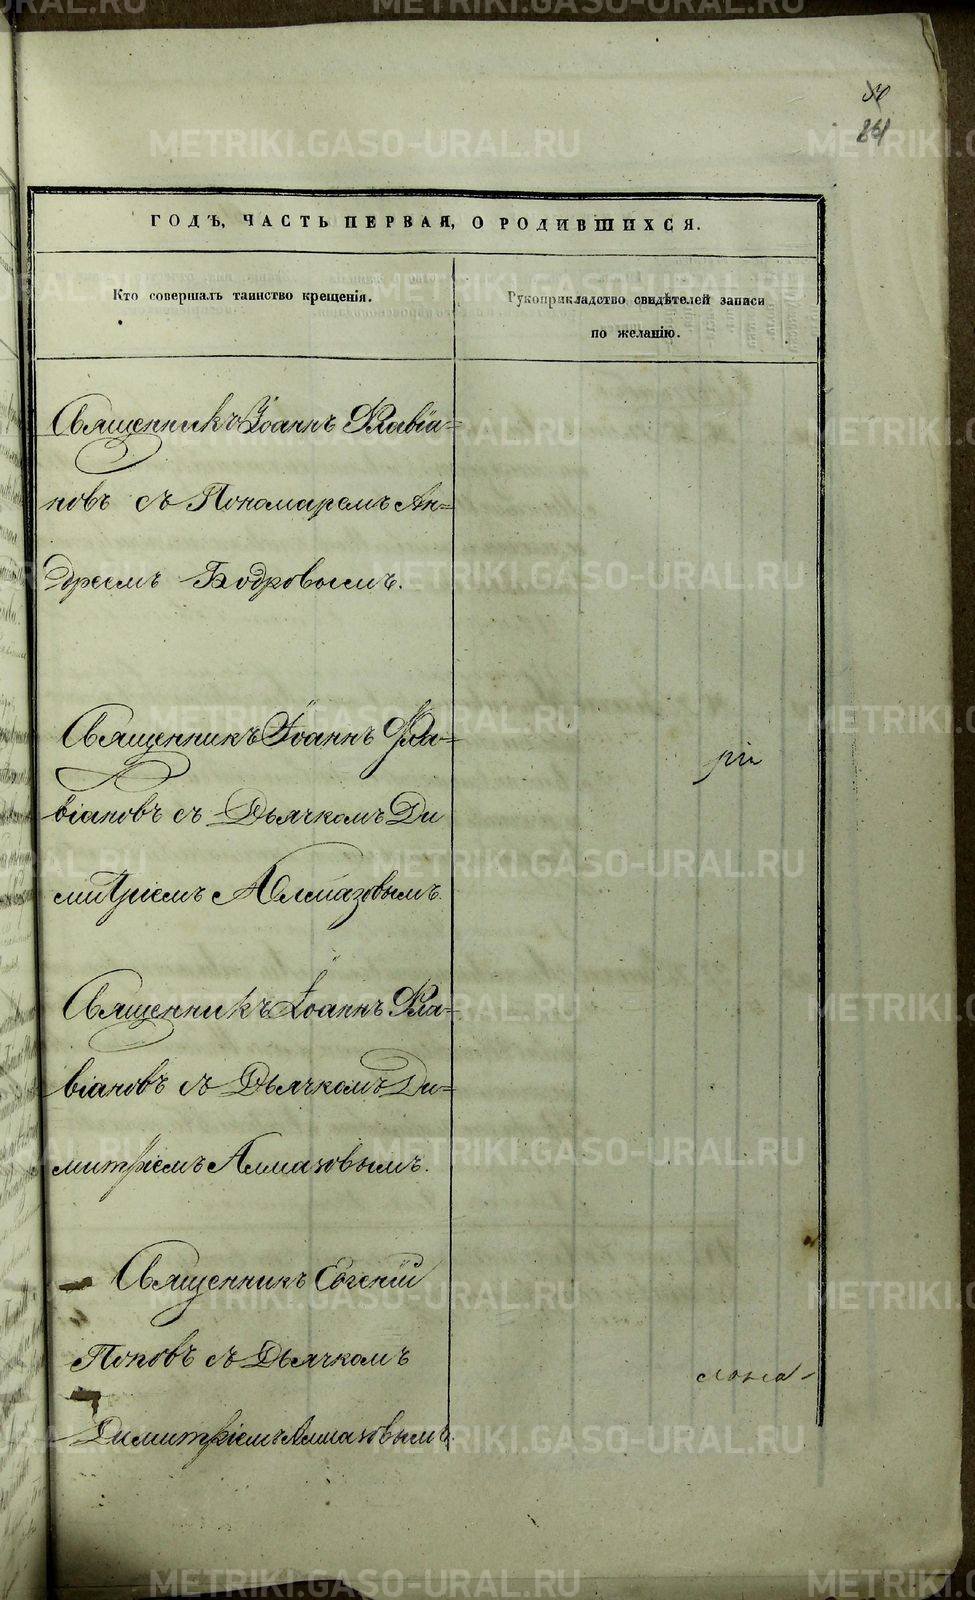 261
ГОДЪ, ЧАСТЬ ПЕРВАЯ, О РОДИВШИХСЯ.
Кто совершалъ таинство крещенія.
Рукоприкладство свидѣтелей записи
по желанію.
Священникъ Іоаннъ Флавіа=
новъ съ Пономаремъ Ан=
дреемъ Бодровымъ.
Священникъ Іоаннъ Фла=
віановъ съ Дьячкомъ Ди
митріемъ Алмазовымъ.
Священникъ Іоаннъ Фла=
віановъ съ Дьячкомъ Ди=
митріемъ Алмазовымъ.
Священникъ Евгеній
Поповъ съ Дьячкомъ
Димитріемъ Алмазовымъ.
METRIKI.GASO-URAL.RU